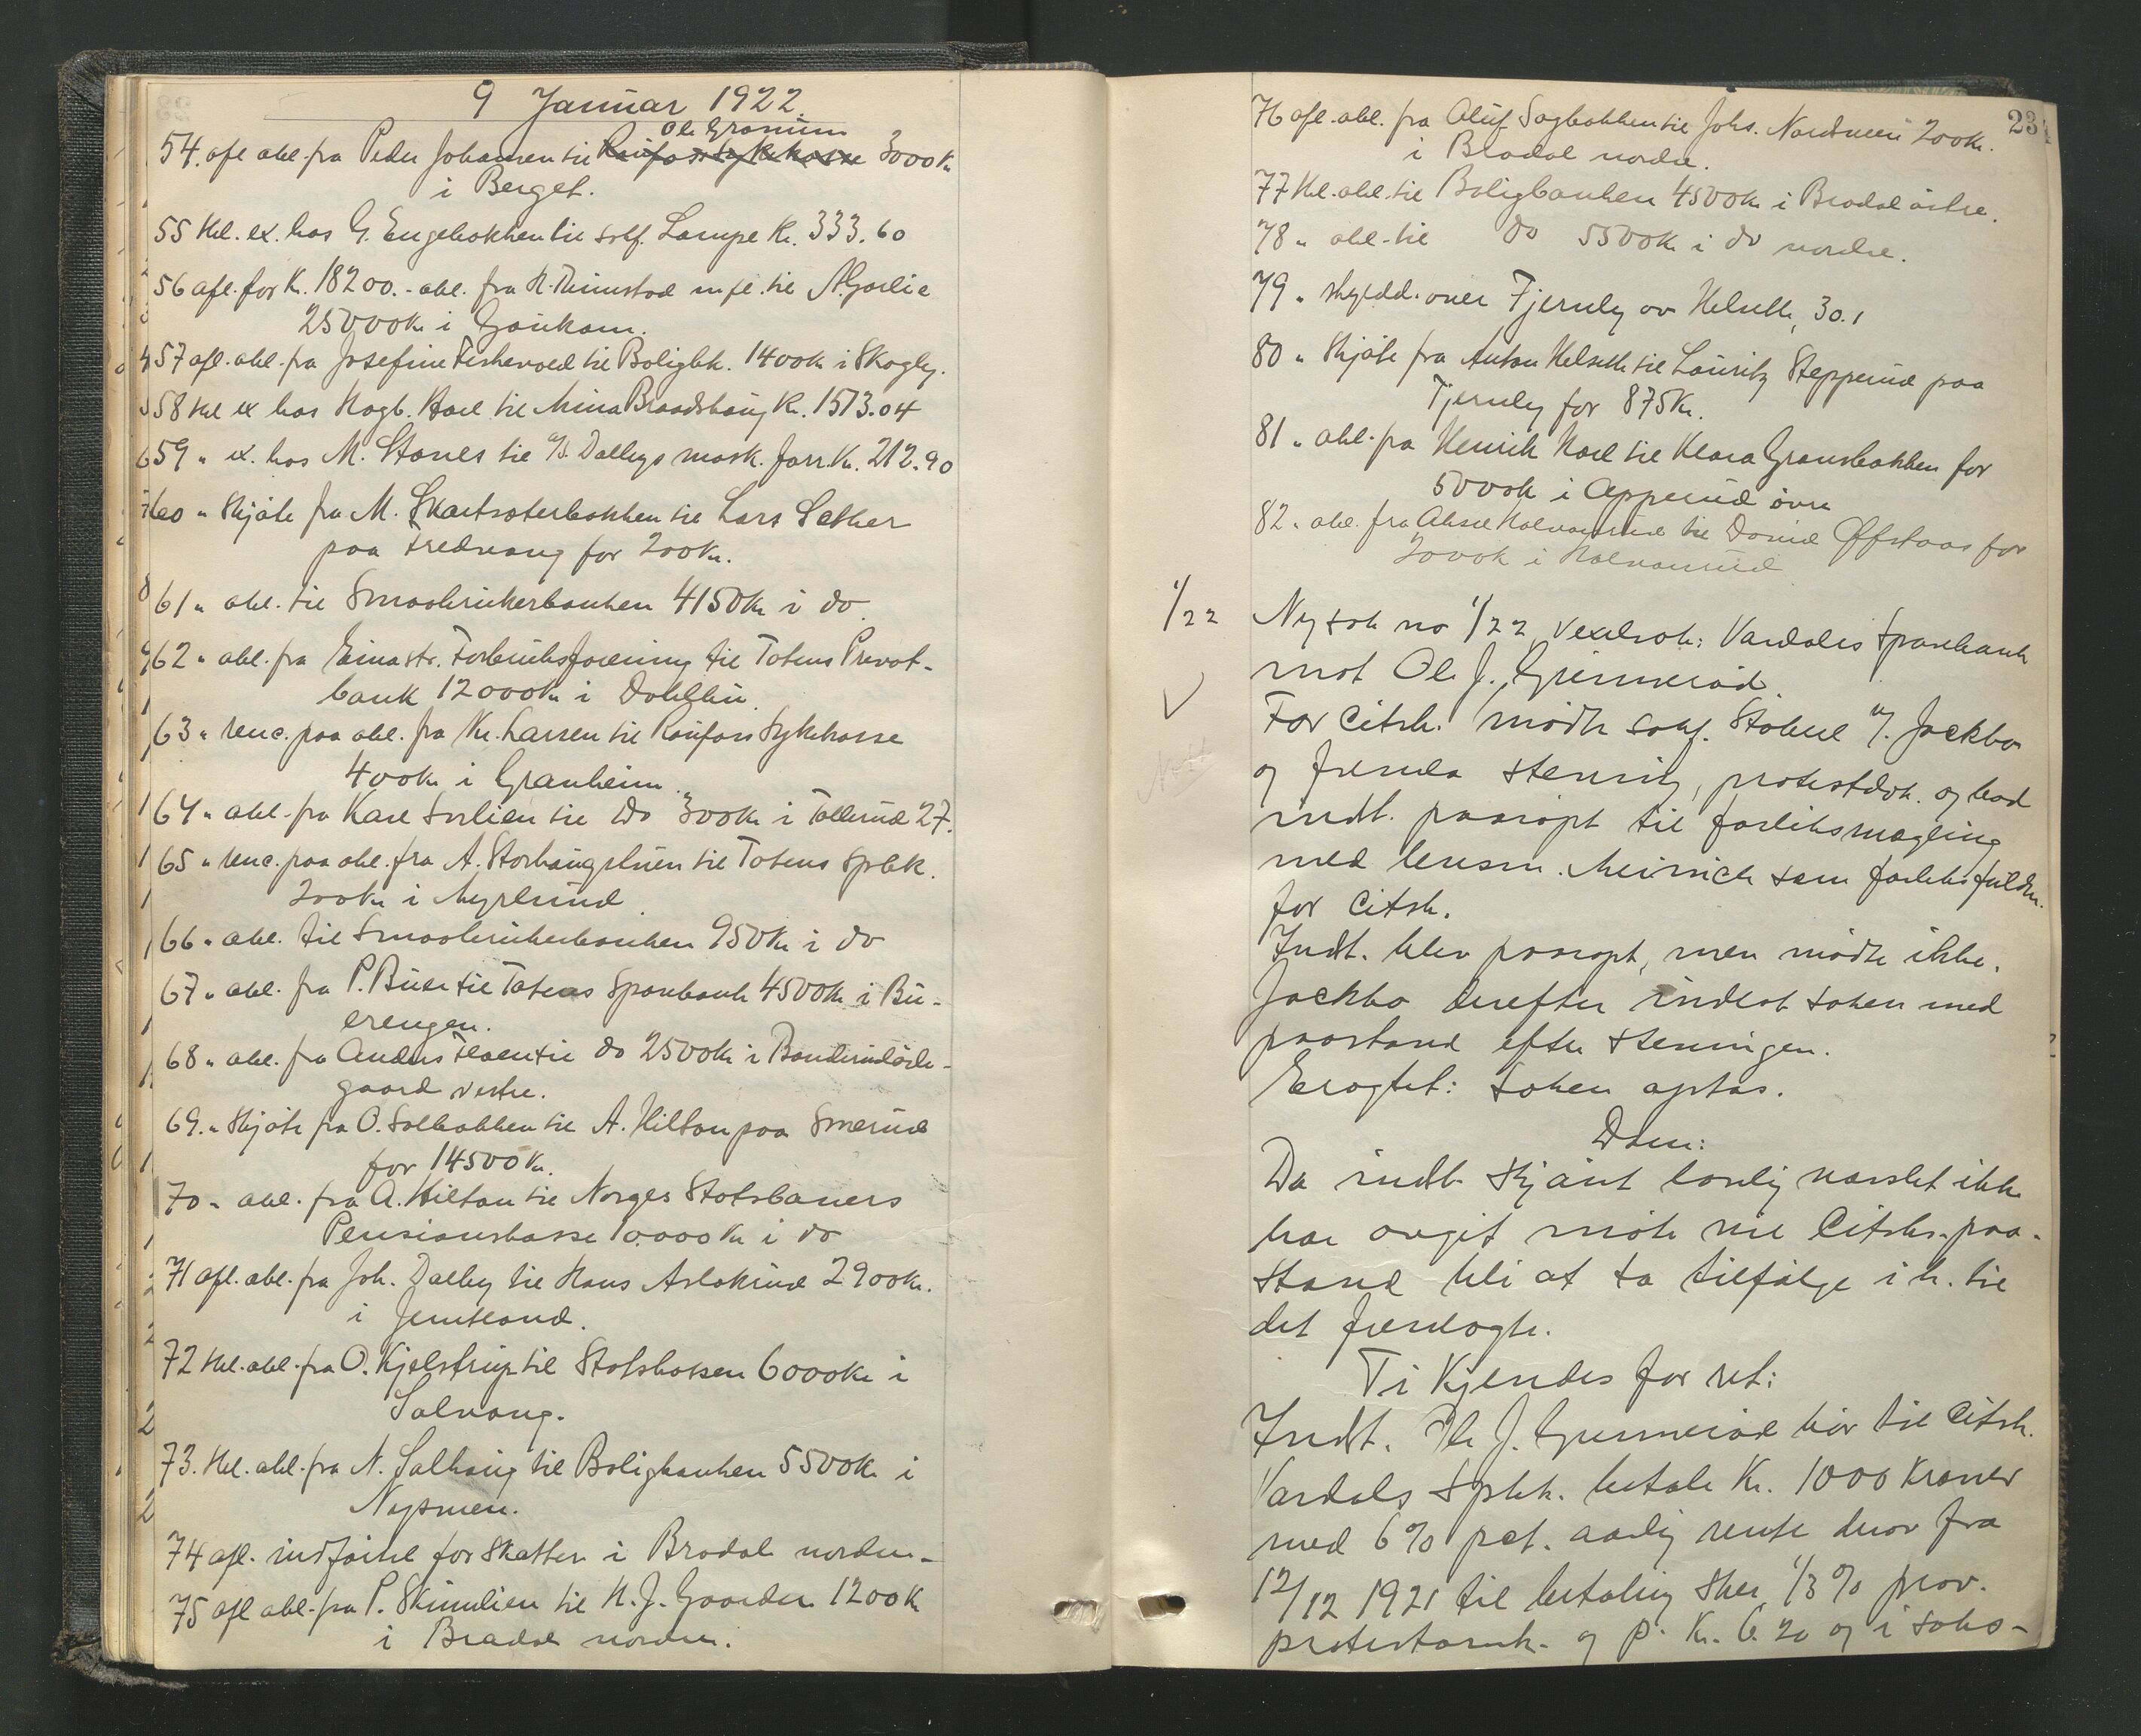 9 Januar 1922.
Ole Granum
54. afl. obl. fra Peder Johansen til Raufoss Sykekasse 3000 Kr
i Berget.
55 Hel. ex. hos G. Engebakken til solf. Lampe Kr. 333.60
56 afl. for Kr. 18200.- obl. fra til
25000 Kr i Gaukam.
57 afl. obl. fra Josefine Fiskevold til Boligbk. 1400 Kr i Skogly.
58 Hel ex hos Hagb. Hoel til Mina Braadshaug Kr. 1513.04
59 " ex. hos M. Stanes til A/S. Dalbys mask. forr. Kr. 212.90
60 " Skjøte fra M. til Lars Sether
paa Fredvang for 200 Kr.
61 " obl. til Smaabrukerbanken 4150 Kr i do
62 " obl. fra Eina str. Forbruksforening til Totens Privat-
bank 12000 Kr i
63 " renc. paa obl. fra Kr. Larsen til Raufoss Sykekasse
400 Kr i Granheim.
64 " obl. fra Karl Sørlien til do 300 Kr i Tollerud 27.
65 " renc. paa obl. fra A. til Totens Spbk.
200 Kr i Myrlund
66 " obl. til Smaabrukerbanken 950 Kr i do
67 " obl. fra P. Buer til Totens Sparebank 4500 Kr i Bu-
erengen.
68 " obl. fra Anders til do 2500 Kr i
gaard vestre.
69. " Skjøte fra O. Solbakken til A. Hilton paa Smerud
for 14500 Kr.
70 - obl. fra A. Hilton til Norges Statsbaners
Pensionskasse 10.000 Kr i do
71 afl. obl. fra Joh. Dalby til Hans Aslakrud 2900 Kr.
i Jemtland.
72 Hel. obl. fra O. Kjelstrup til Statskassen 6000 Kr i
Solvang.
73. Hel. obl. fra N. Solhaug til Boligbanken 5500 Kr i
Nysmen.
74 afl. indførsel for skatter i Bradal nordre-
75 afl obl. fra P. Skundlien til H. J. Gaarder 1200 Kr
i Bradal nordre.
23
76 afl. obl. fra Oluf Sagbakken til Johs. 200 Kr.
i Bradal nordre.
77 Hel. obl. til Boligbanken 4500 Kr i Bradal østre.
78 " obl. til do 5500 Kr i do nordre.
79 " skyldd. over Fjernly av Helseth, 30.1
80 " Skjøte fra Anton Helseth til Lauritz Stepperud paa
Fjernly for 875 Kr.
81 " obl. fra Henrik Hoel til Klara Gransbakken for
5000 Kr i Apperud øvre
82 " obl. fra til David Øfstaas for
2000 Kr i Halvorsrud
1/22 Ny sak no 1/22, vexelsak: Vardals Sparebank
mot Ole J. Grimerød.
For Citsk. mødte sakf. Stabel v/. Jackbo
og fremla stevning, protestdok. og bad
indst. paaropt til forliksmægling
med lensm. Meinich som forliksfuldm.
for Citsk.
Indst. blev paaropt, men mødte ikke.
Jackbo derefter indlot saken med
paastand efter stevningen.
Eragtet: Saken optas.
Dom:
Da indst. skjønt lovlig varslet ikke
har avgit møte vil Citsks. paa-
stand bli at ta tilfølge i h. til
det fremlagte.
Ti kjendes for ret:
Indst. Ole J. Grimerød bør til Citsk.
Vardals Spbk. betale Kr. 1000 Kroner
med 6% pct. aarlig rente derav fra
12/12 1921 til betaling sker, 1/3 % prov.
protestomk. og p. Kr. 6.20 og i saks-